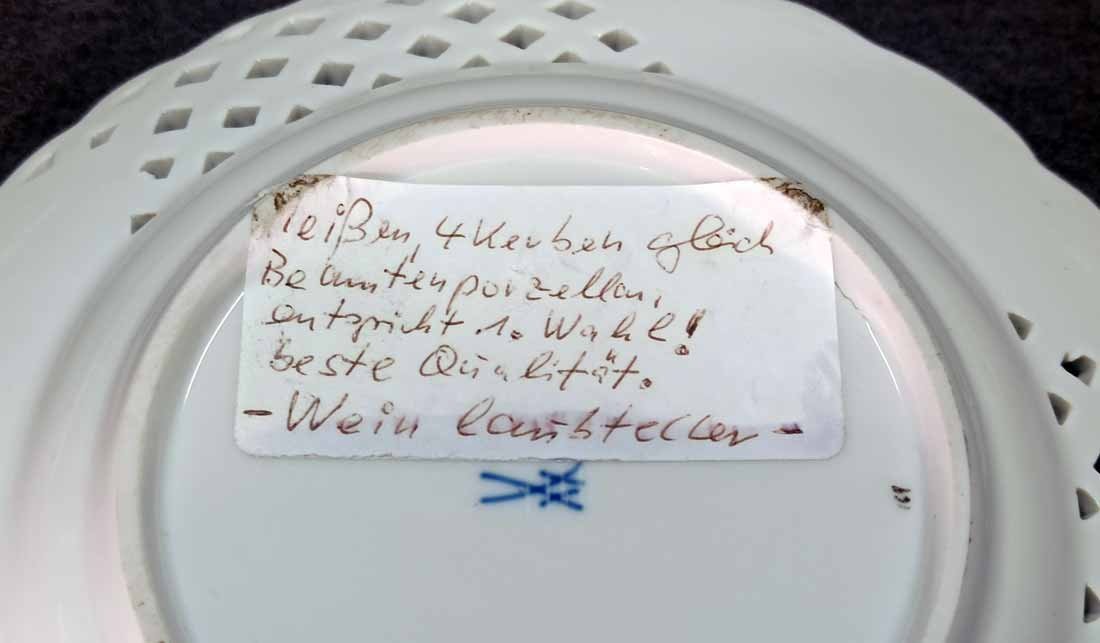 Meißen, 4 Kerben gleich
Beamtenporzellan,
entspricht 1. Wahl!
beste Qualität.
- Weinlaubteller -